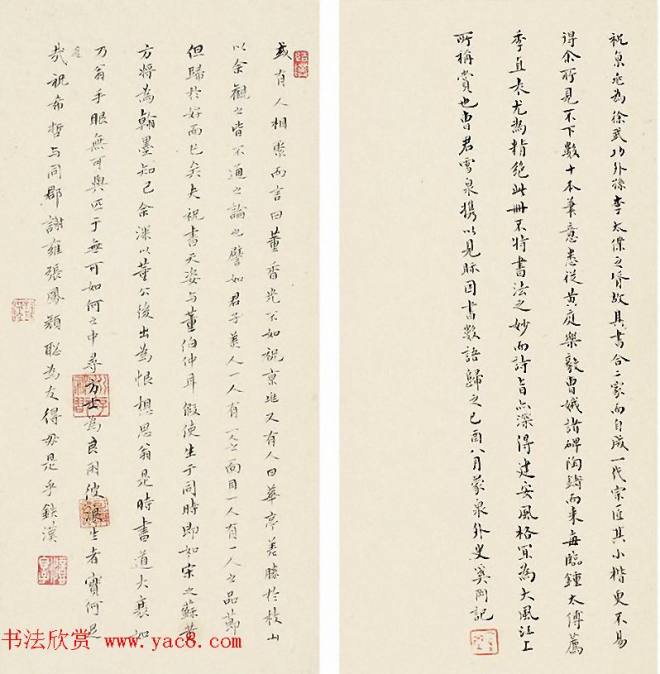 祝京兆為徐武功外孫李太僕之壻故其書合二家而自成一代宗匠其小楷更不易
得余所見不下數十本筆意悉從黃庭樂毅曹娥諸碑陶鑄而来每臨鍾太傅薦
季直表尤為精絕此冊不特書法之妙而詩旨亦深得建安風格宜為大風江上
所稱賞也曹君雪泉攜以見眎因書數語歸之己酉八月蒙泉外史奚岡記
或有人相商而言曰董香光不如祝京兆又有人曰華亭美勝於枝山
以余觀之皆不通之論也譬如君子美人一人有一人之面目一人有一人之品節
但歸於好而已矣夫祝書天姿与董伯仲耳假使生于同時即如宋之蘇黃
方將為翰墨知己余深以董公後出為恨想思翁是時書道大襄如
乃翁手眼無可與匹于無可如何之中尋方士為良朋彼 生者實何足
哉祝希哲与同郡謝雍張鳳顏聰為友得毋是乎 漢
书法欣赏 www.yac8.com